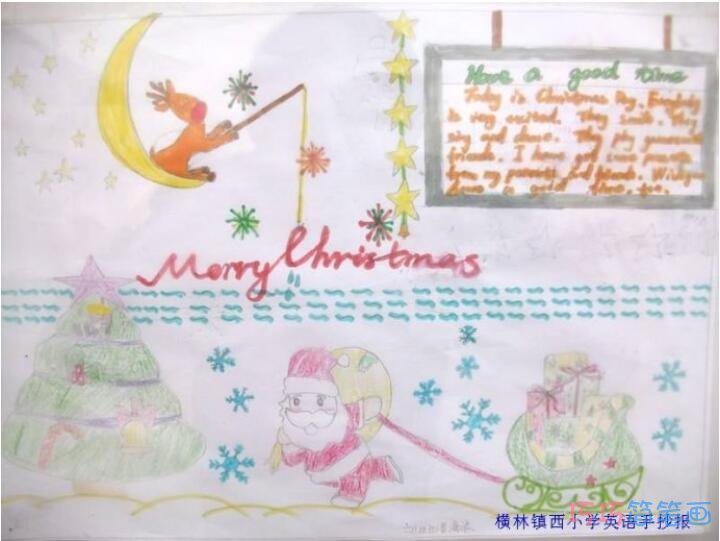 Have a good time
Today is Christmas Day. Everybody
is very excited. They smile. They
sing and dance. They
friends. I have got some presents
from my parents and friends. Wish you
have a good time, too.
Merry Christmas
横林镇西小学英语手抄报
笔笔画